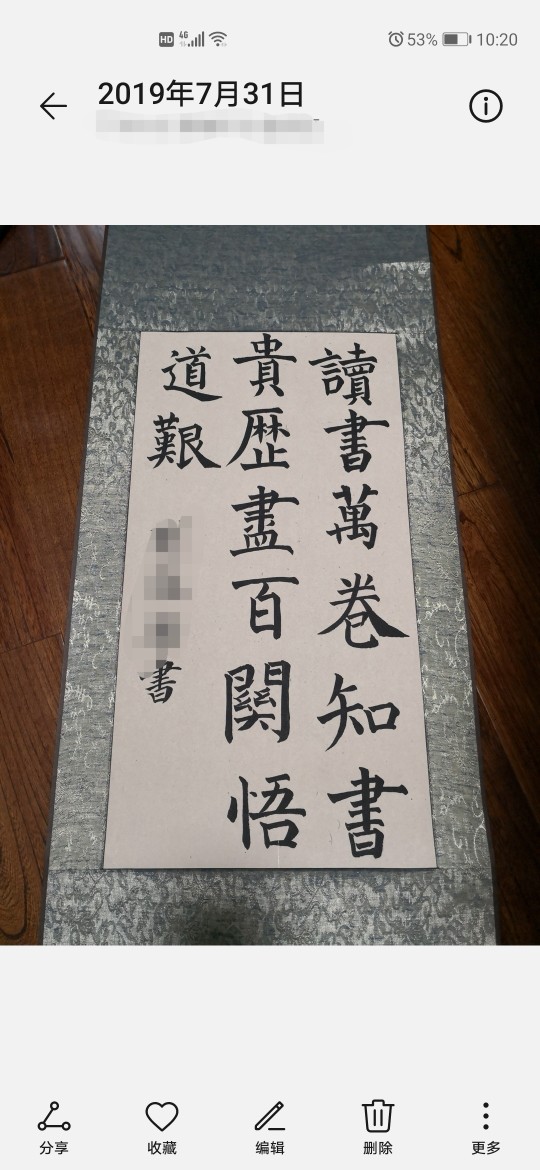 HD 4G 53% 10:20
2019年7月31日
讀書萬卷知書
貴歷盡百關悟
道艱
書
分享 收藏 编辑 删除 更多